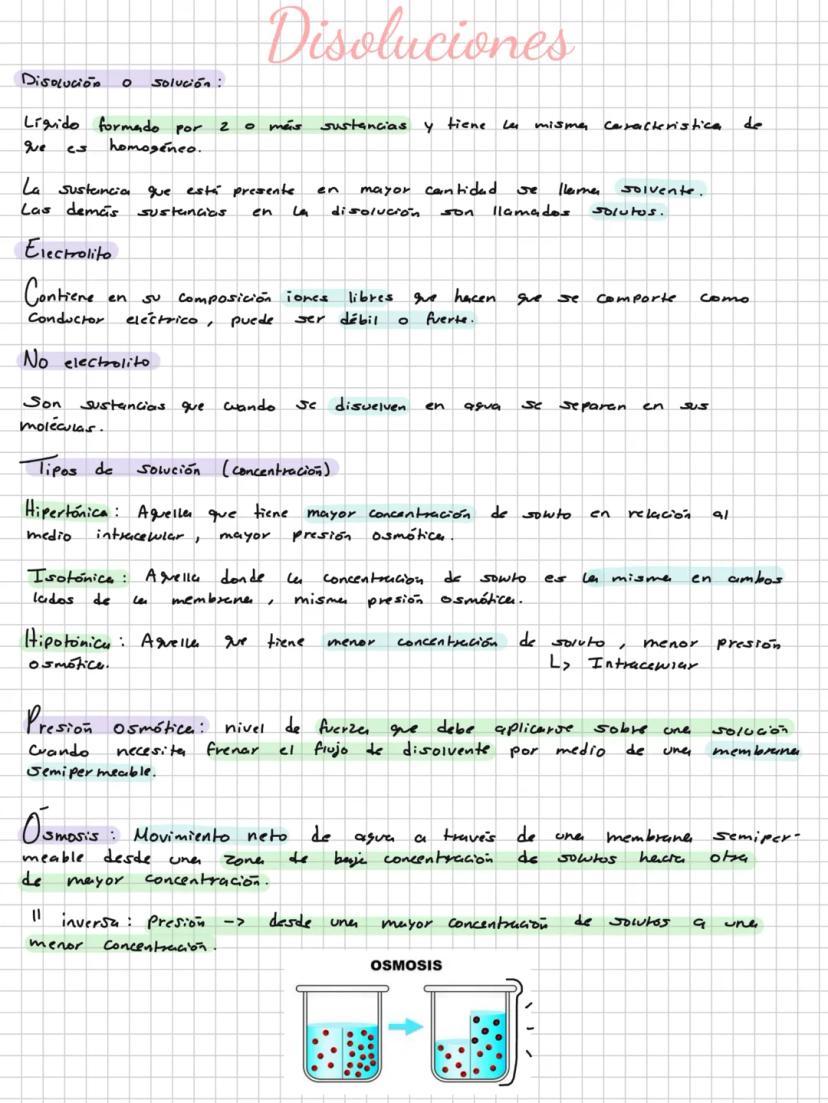 Disoluciones
Disolución o solución:
Líquido formado por 2 o más sustancias y tiene la misma característica de
que es homogéneo.
La sustancia que está presente en mayor cantidad se llama solvente.
Las demás sustancias en la disolución son llamados solutos.
Electrolito
Contiene en su composición iones libres que hacen que se comporte como
conductor eléctrico, puede ser débil o fuerte.
No electrolito
Son sustancias que cuando se disuelven en agua se separan en sus
moléculas.
Tipos de solución (concentración)
Hipertónica: Aquella que tiene mayor concentración de soluto en relación al
medio intracelular, mayor presión osmótica.
Isotónica: Aquella donde la concentracion de soluto es la misma en ambos
lados de la membrana, misma presión osmótica.
Hipotónica: Aquella que tiene menor concentración de soluto, menor presión
osmótica. L> Intracelular
Presión osmótica: nivel de fuerza que debe aplicarse sobre una solución
cuando necesita frenar el flujo de disolvente por medio de una membrana
semipermeable.
Ósmosis: Movimiento neto de agua a través de una membrana semiper-
meable desde una zona de baja concentración de solutos hacia otra
de mayor concentración.
" inversa: Presión -> desde una mayor concentración de solutos a una
menor concentración.
OSMOSIS